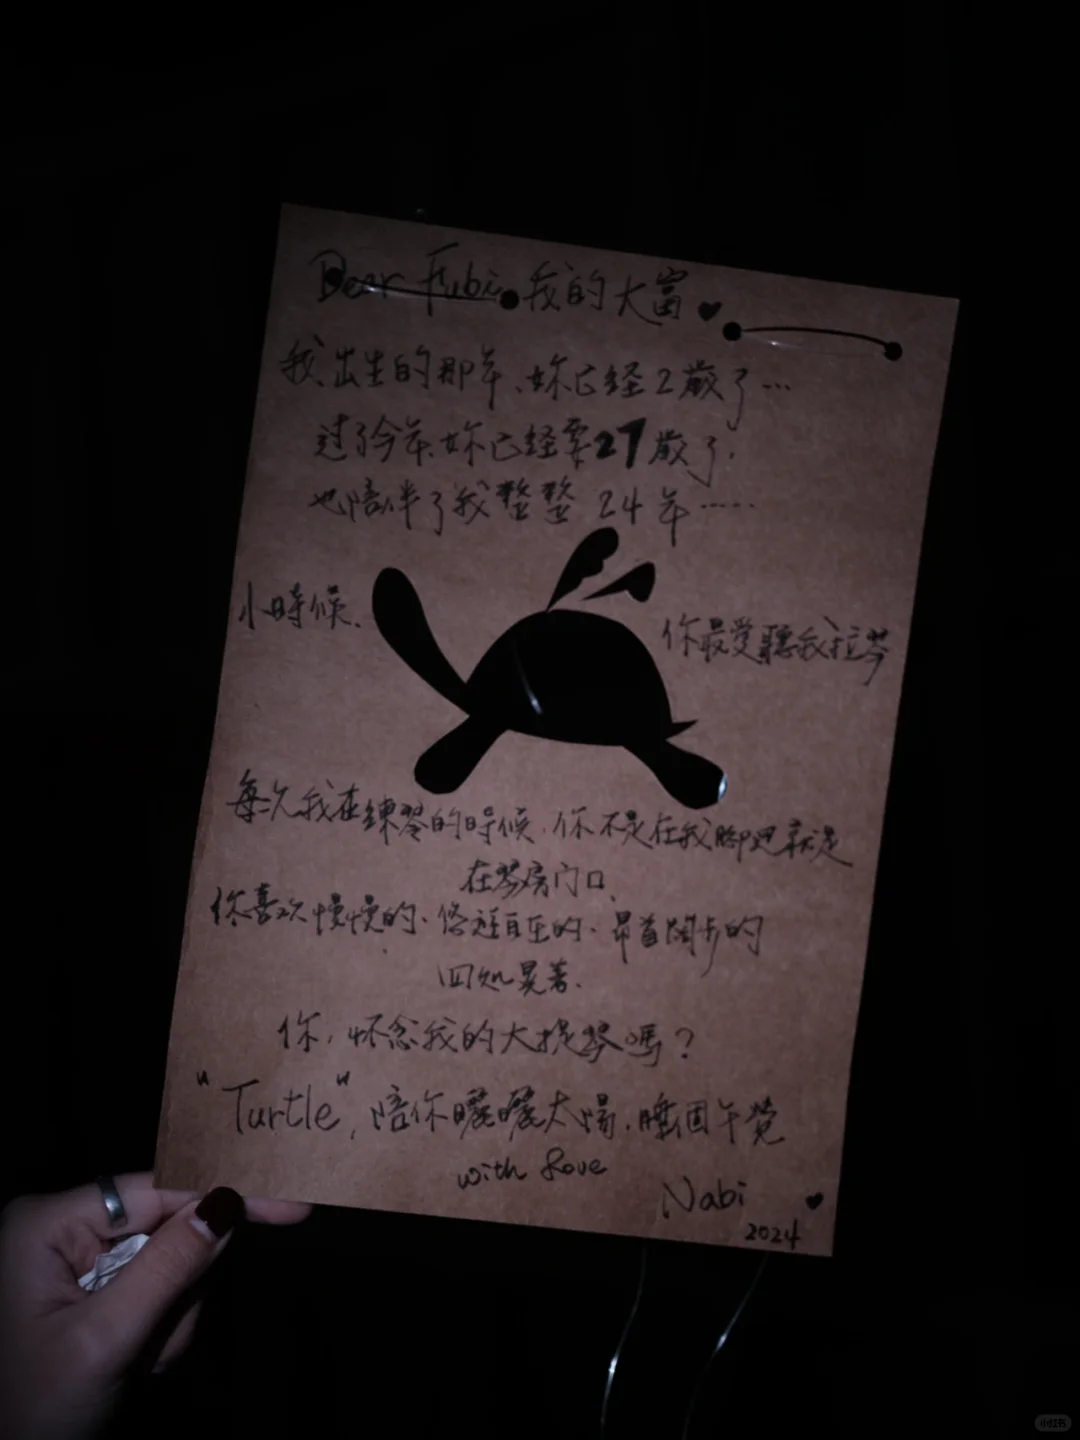 Dear Fubi 我的大富♥
我出生的那年、妳已经2歲了…
过了今年、妳已经要27歲了.
也陪伴了我整整 24年……
小時候、
你最愛聽我拉琴
每次我在練琴的時候、你不是在我腳边就是
在琴房门口、
你喜欢慢慢的、悠遊自在的、昂首阔步的
四处晃着.
你,怀念我的大提琴嗎?
"Turtle", 陪你曬曬太陽、睡個午覺
with love
Nabi ♥
2024
小红书